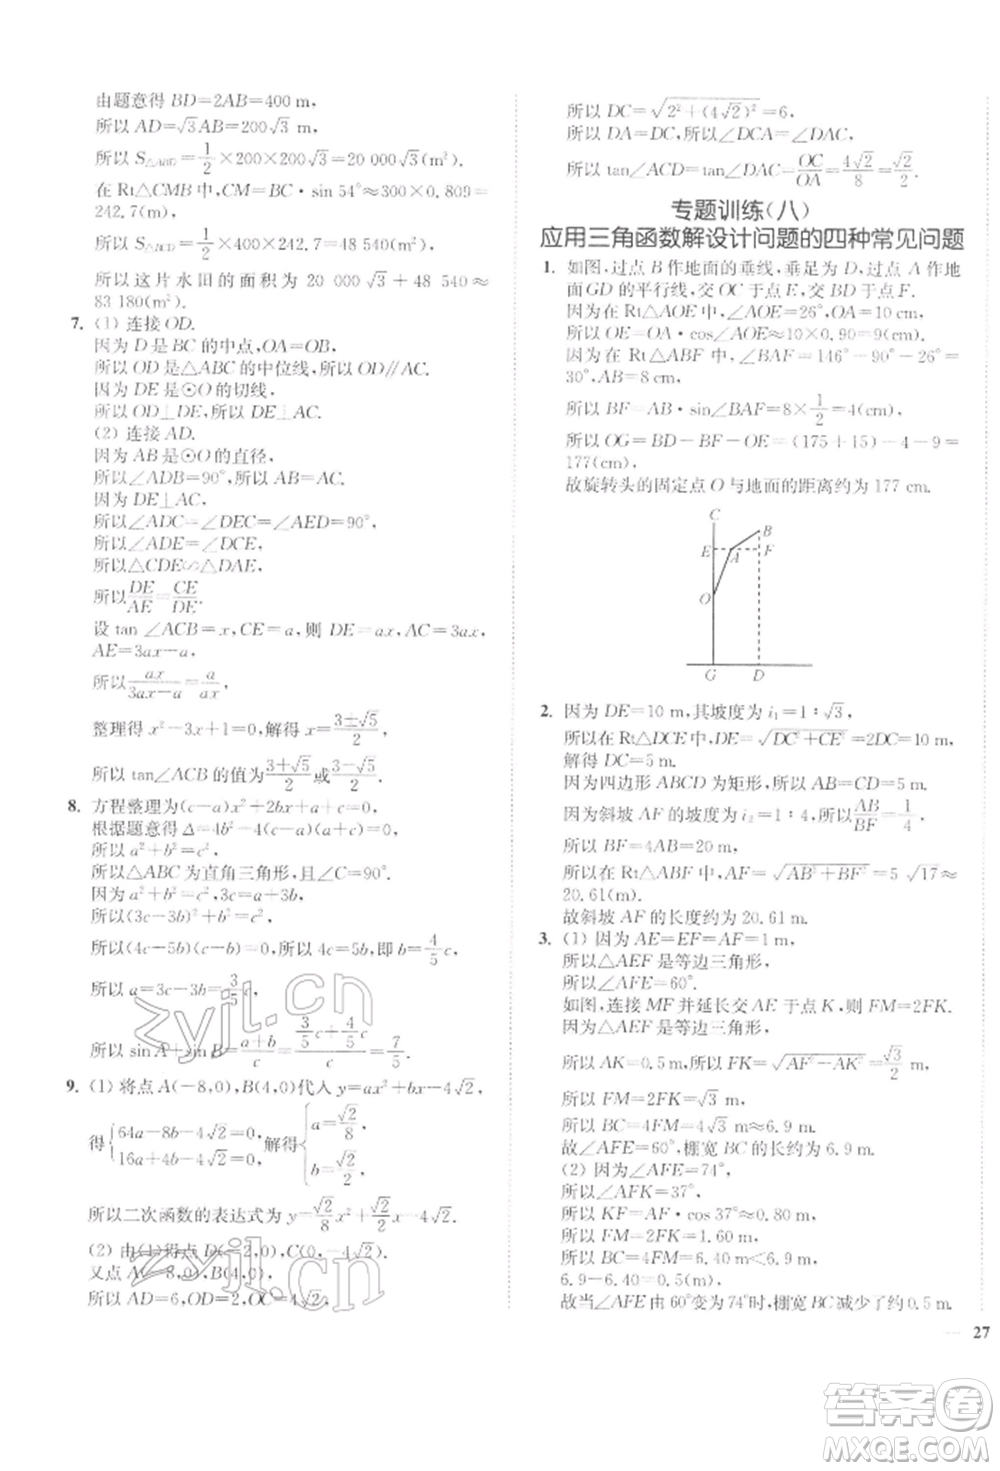 由题意得 BD=2AB=400 m,
所以 AD=√3AB=200√3 m,
所以 S△ABD=1/2×200×200√3=20 000√3(m²).
在 Rt△CMB 中,CM=BC·sin 54°≈300×0.809=
242.7(m),
所以 S△BCD≈1/2×400×242.7=48 540(m²),
所以这片水旧的面积为 20 000√3+48 540≈
83 180(m²).
7. (1) 连接 OD.
因为 D 是 BC 的中点,OA=OB,
所以 OD 是△ABC 的中位线,所以 OD∥AC.
因为 DE 是⊙O 的切线,
所以 OD⊥DE,所以 DE⊥AC.
(2) 连接 AD.
因为 AB 是⊙O 的直径,
所以∠ADB=90°,所以 AB=AC.
因为 DE⊥AC,
所以∠ADC=∠DEC=∠AED=90°,
所以∠ADE=∠DCE,
所以△CDE∽△DAE,
所以DE/AE=CE/DE.
设 tan ∠ACB=x,CE=a,则 DE=ax,AC=3ax,
AE=3ax-a,
所以ax/(3ax-a)=a/ax,
整理得 x²-3x+1=0,解得 x=(3±√5)/2,
所以 tan∠ACB 的值为(3+√5)/2或(3-√5)/2.
8. 方程整理为(c-a)x²+2bx+a+c=0,
根据题意得 Δ=4b²-4(c-a)(a+c)=0,
所以 a²+b²=c²,
所以△ABC 为直角三角形,∠C=90°.
因为 a²+b²=c²,3c=a+3b,
所以(3c-3b)²+b²=c²,
所以(4c-5b)(c-b)=0,所以 4c=5b,即 b=4/5c,
所以 a=3c-3b=3/5c,
所以 sin A+sin B=(a+b)/c=(3/5c+4/5c)/c=7/5.
9. (1) 将点 A(-8,0),B(4,0)代入 y=ax²+bx-4√2,
得{64a-8b-4√2=0, 16a+4b-4√2=0,解得{a=√2/8, b=√2/2,
所以二次函数的表达式为 y=√2/8x²+√2/2x-4√2.
(2) 由(1)得点 D(-2,0),C(0,-4√2).
又点 A(-8,0),B(4,0),
所以 AD=6,OD=2,OC=4√2,
所以 DC=√(2²+(4√2)²)=6,
所以 DA=DC,所以∠DCA=∠DAC,
所以 tan∠ACD=tan∠DAC=OC/OA=4√2/8=√2/2.
专题训练(八)
应用三角函数解设计问题的四种常见问题
1. 如图,过点 B 作地面的垂线,垂足为 D,过点 A 作地
面 GD 的平行线,交 OC 于点 E,交 BD 于点 F.
因为在 Rt△AOE 中,∠AOE=26°,OA=10 cm,
所以 OE=OA·cos∠AOE≈10×0.90=9(cm).
因为在 Rt△ABF 中,∠BAF=146°-90°-26°=
30°,AB=8 cm,
所以 BF=AB·sin∠BAF=8×1/2=4(cm),
所以 OG=BD-BF-OE=(175+15)-4-9=
177(cm),
故旋转头的固定点 O 与地面的距离约为 177 cm.
C
B
E
A
F
O
G
D
2. 因为 DE=10 m,其坡度为 i₁=1∶√3,
所以在 Rt△DCE 中,DE=√(DC²+CE²)=2DC=10 m,
解得 DC=5 m.
因为四边形 ABCD 为矩形,所以 AB=CD=5 m.
因为斜坡 AF 的坡度为 i₂=1∶4,所以AB/BF=1/4,
所以 BF=4AB=20 m,
所以在 Rt△ABF 中,AF=√(AB²+BF²)=5√17≈
20.61(m).
故斜坡 AF 的长度约为 20.61 m.
3. (1) 因为 AE=EF=AF=1 m,
所以△AEF 是等边三角形,
所以∠AFE=60°.
如图,连接 MF 并延长交 AE 于点 K,则 FM=2FK.
因为△AEF 是等边三角形,
所以 AK=0.5 m,所以 FK=√(AF²-AK²)=√3/2 m,
所以 FM=2FK=√3 m,
所以 BC=4FM=4√3 m≈6.9 m.
故∠AFE=60°,棚宽 BC 的长约为 6.9 m.
(2) 因为∠AFE=74°,
所以∠AFK=37°,
所以 KF=AF·cos 37°≈0.80 m,
所以 FM=2FK=1.60 m,
所以 BC=4FM=6.40 m<6.92 m,
6.9-6.40=0.5(m).
故当∠AFE 由 60°变为 74°时,棚宽 BC 减少了约 0.5 m.
27
zyjl.cn
zyjl.cn
答案圈
MXQE.COM